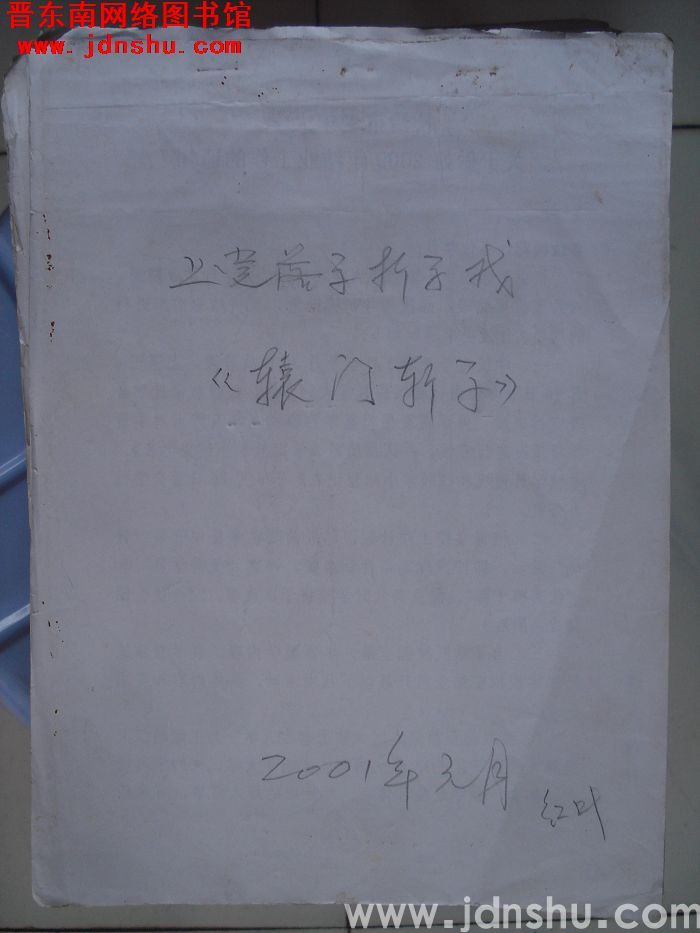 晋东南网络图书馆
www.jdnshu.com
上党落子折子戏
《辕门斩子》
2001年元月
红叶
www.jdnshu.com